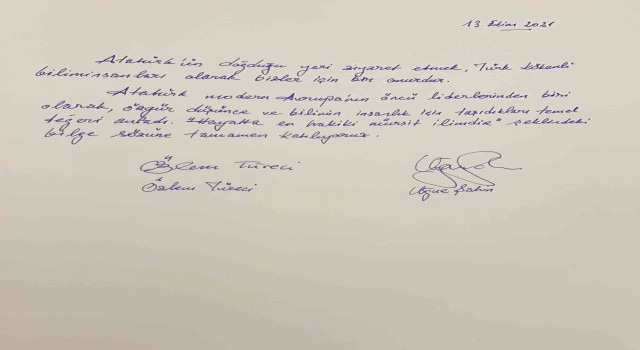 13 Ekim 2021
Atatürk'ün doğduğu yeri ziyaret etmek, Türk kökenli
bilim insanları olarak bizler için bir onurdur.
Atatürk modern Avrupa'nın öncü liderlerinden biri
olarak, özgür düşünce ve bilimin insanlık için taşıdıkları temel
değeri anladı. "Hayatta en hakiki mürşit ilimdir" şeklindeki
bilge sözüne tamamen katılıyoruz.
Özlem Türeci
Özlem Türeci Uğur Şahin